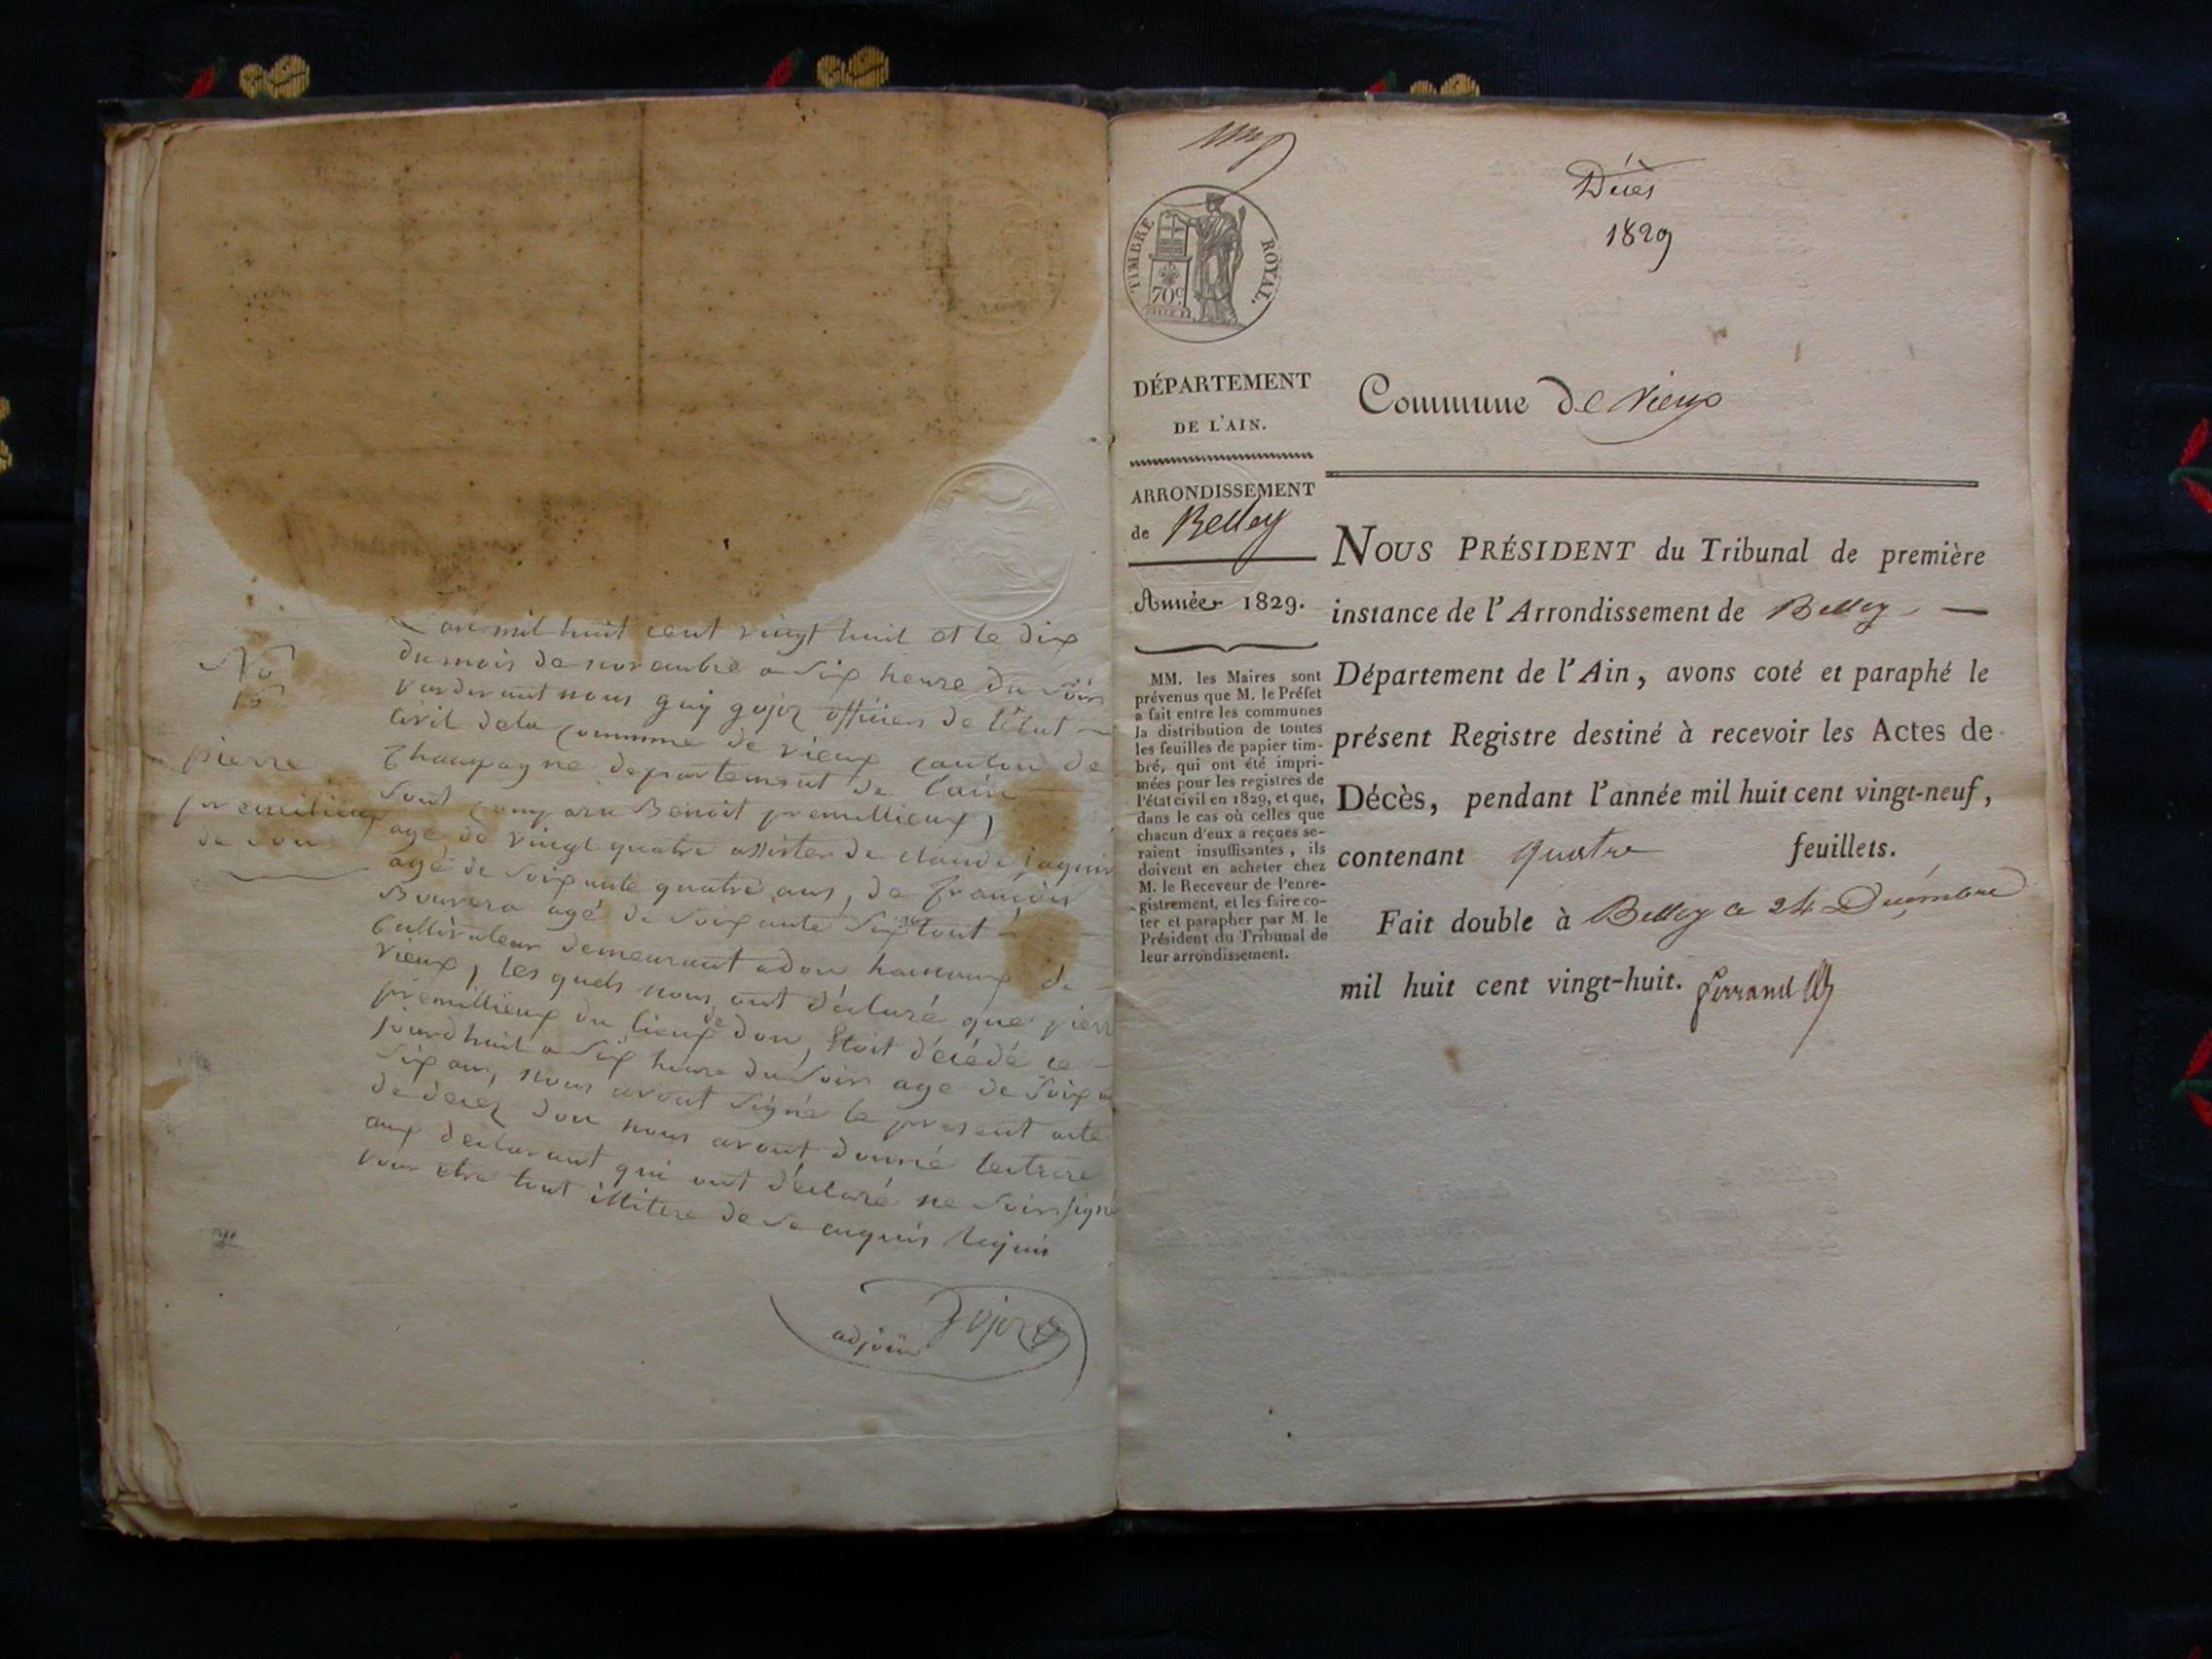 L'an mil huit cent vingt huit et le dix
du mois de novembre a six heure du soir
pardevant nous guy gojoz officier de l'état
civil de la commune de vieux canton de
Champagne departement de l'ain
sont comparu Benoit premillieux
agé de vingt quatre assister de claude jaquin
agé de soixante quatre ans, de françois
Bouvera agé de soixante six ans tout
Cultivateur demeurant a don hameaux de
vieux, les quels nous ont déclaré que pierr
premillieux du lieux de don, étoit décédé ce
jourdhuit a six heure du soir age de soix
six ans, nous avont signé le present acte
de decez don nous avont donné lecture
aux declarant qui ont déclaré ne soir signé
pour etre tout illitere de ce enquis
gojoz
adjoin
No
pierre
premilieux
de don
Décès
1829
TIMBRE ROYAL.
70c
DÉPARTEMENT
DE L'AIN.
Commune de vieux
ARRONDISSEMENT
de Belley
Année 1829.
MM. les Maires sont
prévenus que M. le Préfet
a fait entre les communes
la distribution de toutes
les feuilles de papier tim-
bré, qui ont été impri-
mées pour les registres de
l'état civil en 1829, et que,
dans le cas où celles que
chacun d'eux a reçues se-
raient insuffisantes, ils
doivent en acheter chez
M. le Receveur de l'enre-
gistrement, et les faire co-
ter et parapher par M. le
Président du Tribunal de
leur arrondissement.
NOUS PRÉSIDENT du Tribunal de première
instance de l'Arrondissement de Belley
Département de l'Ain, avons coté et paraphé le
présent Registre destiné à recevoir les Actes de
Décès, pendant l'année mil huit cent vingt-neuf,
contenant quatre feuillets.
Fait double à Belley ce 24 Décembre
mil huit cent vingt-huit. ferrand